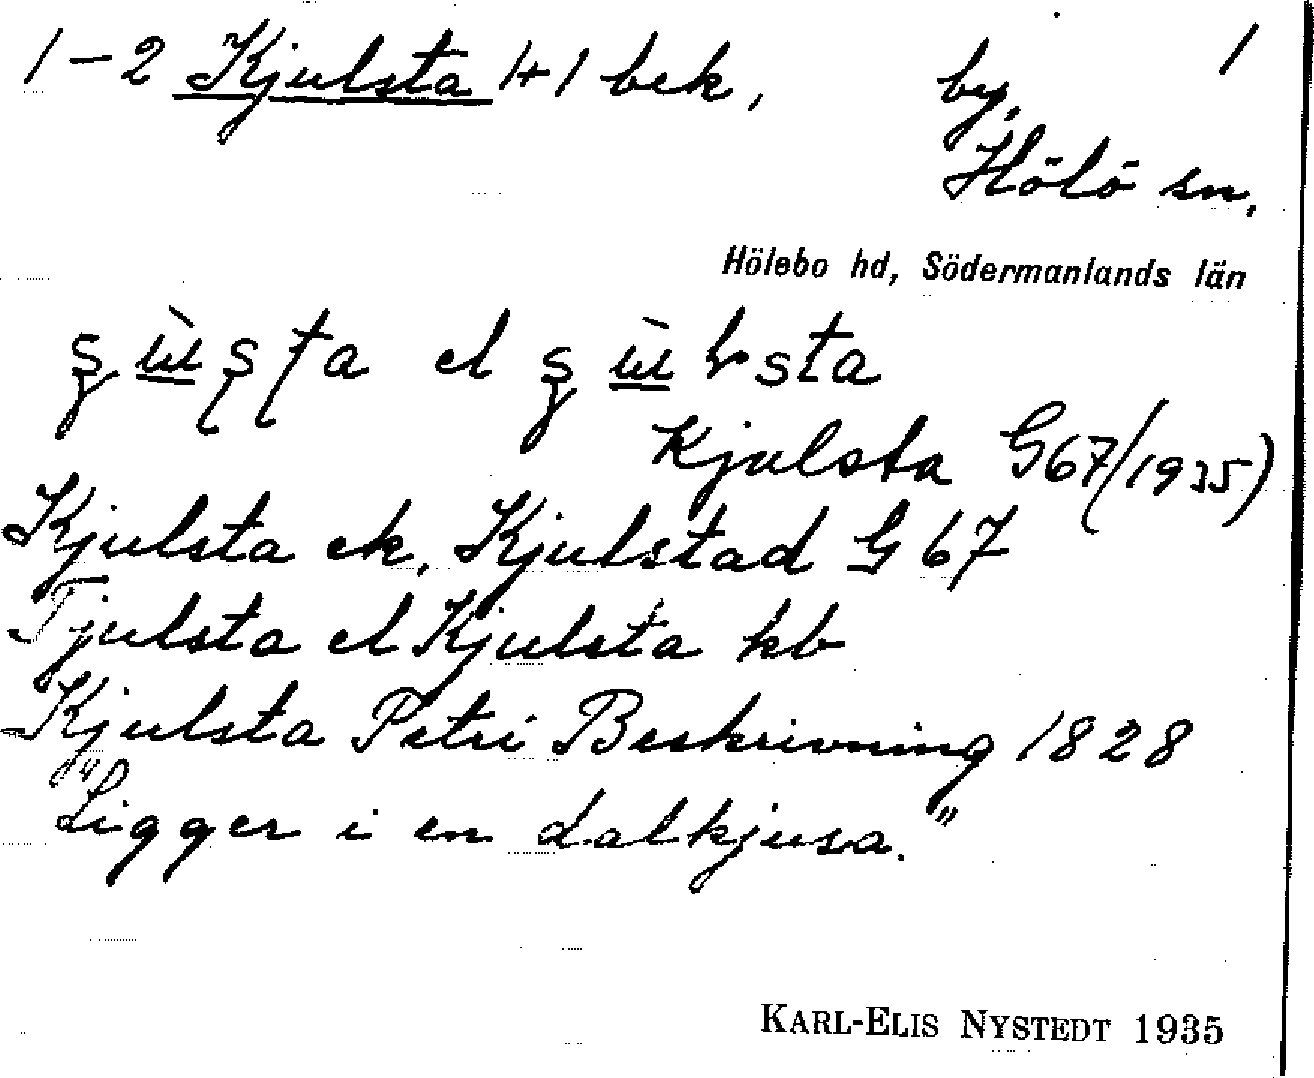 1-2 Kjulsta 1+1 bek, by, 1
Hölö sn.
Hölebo hd, Södermanlands län
el
Kjulsta G67/1935)
Kjulsta ek, Kjulstad G 67
Tjulsta el Kjulsta kb
Kjulsta Petri Beskrivning 1828
"Ligger i en dalkjusa."
KARL-ELIS NYSTEDT 1935